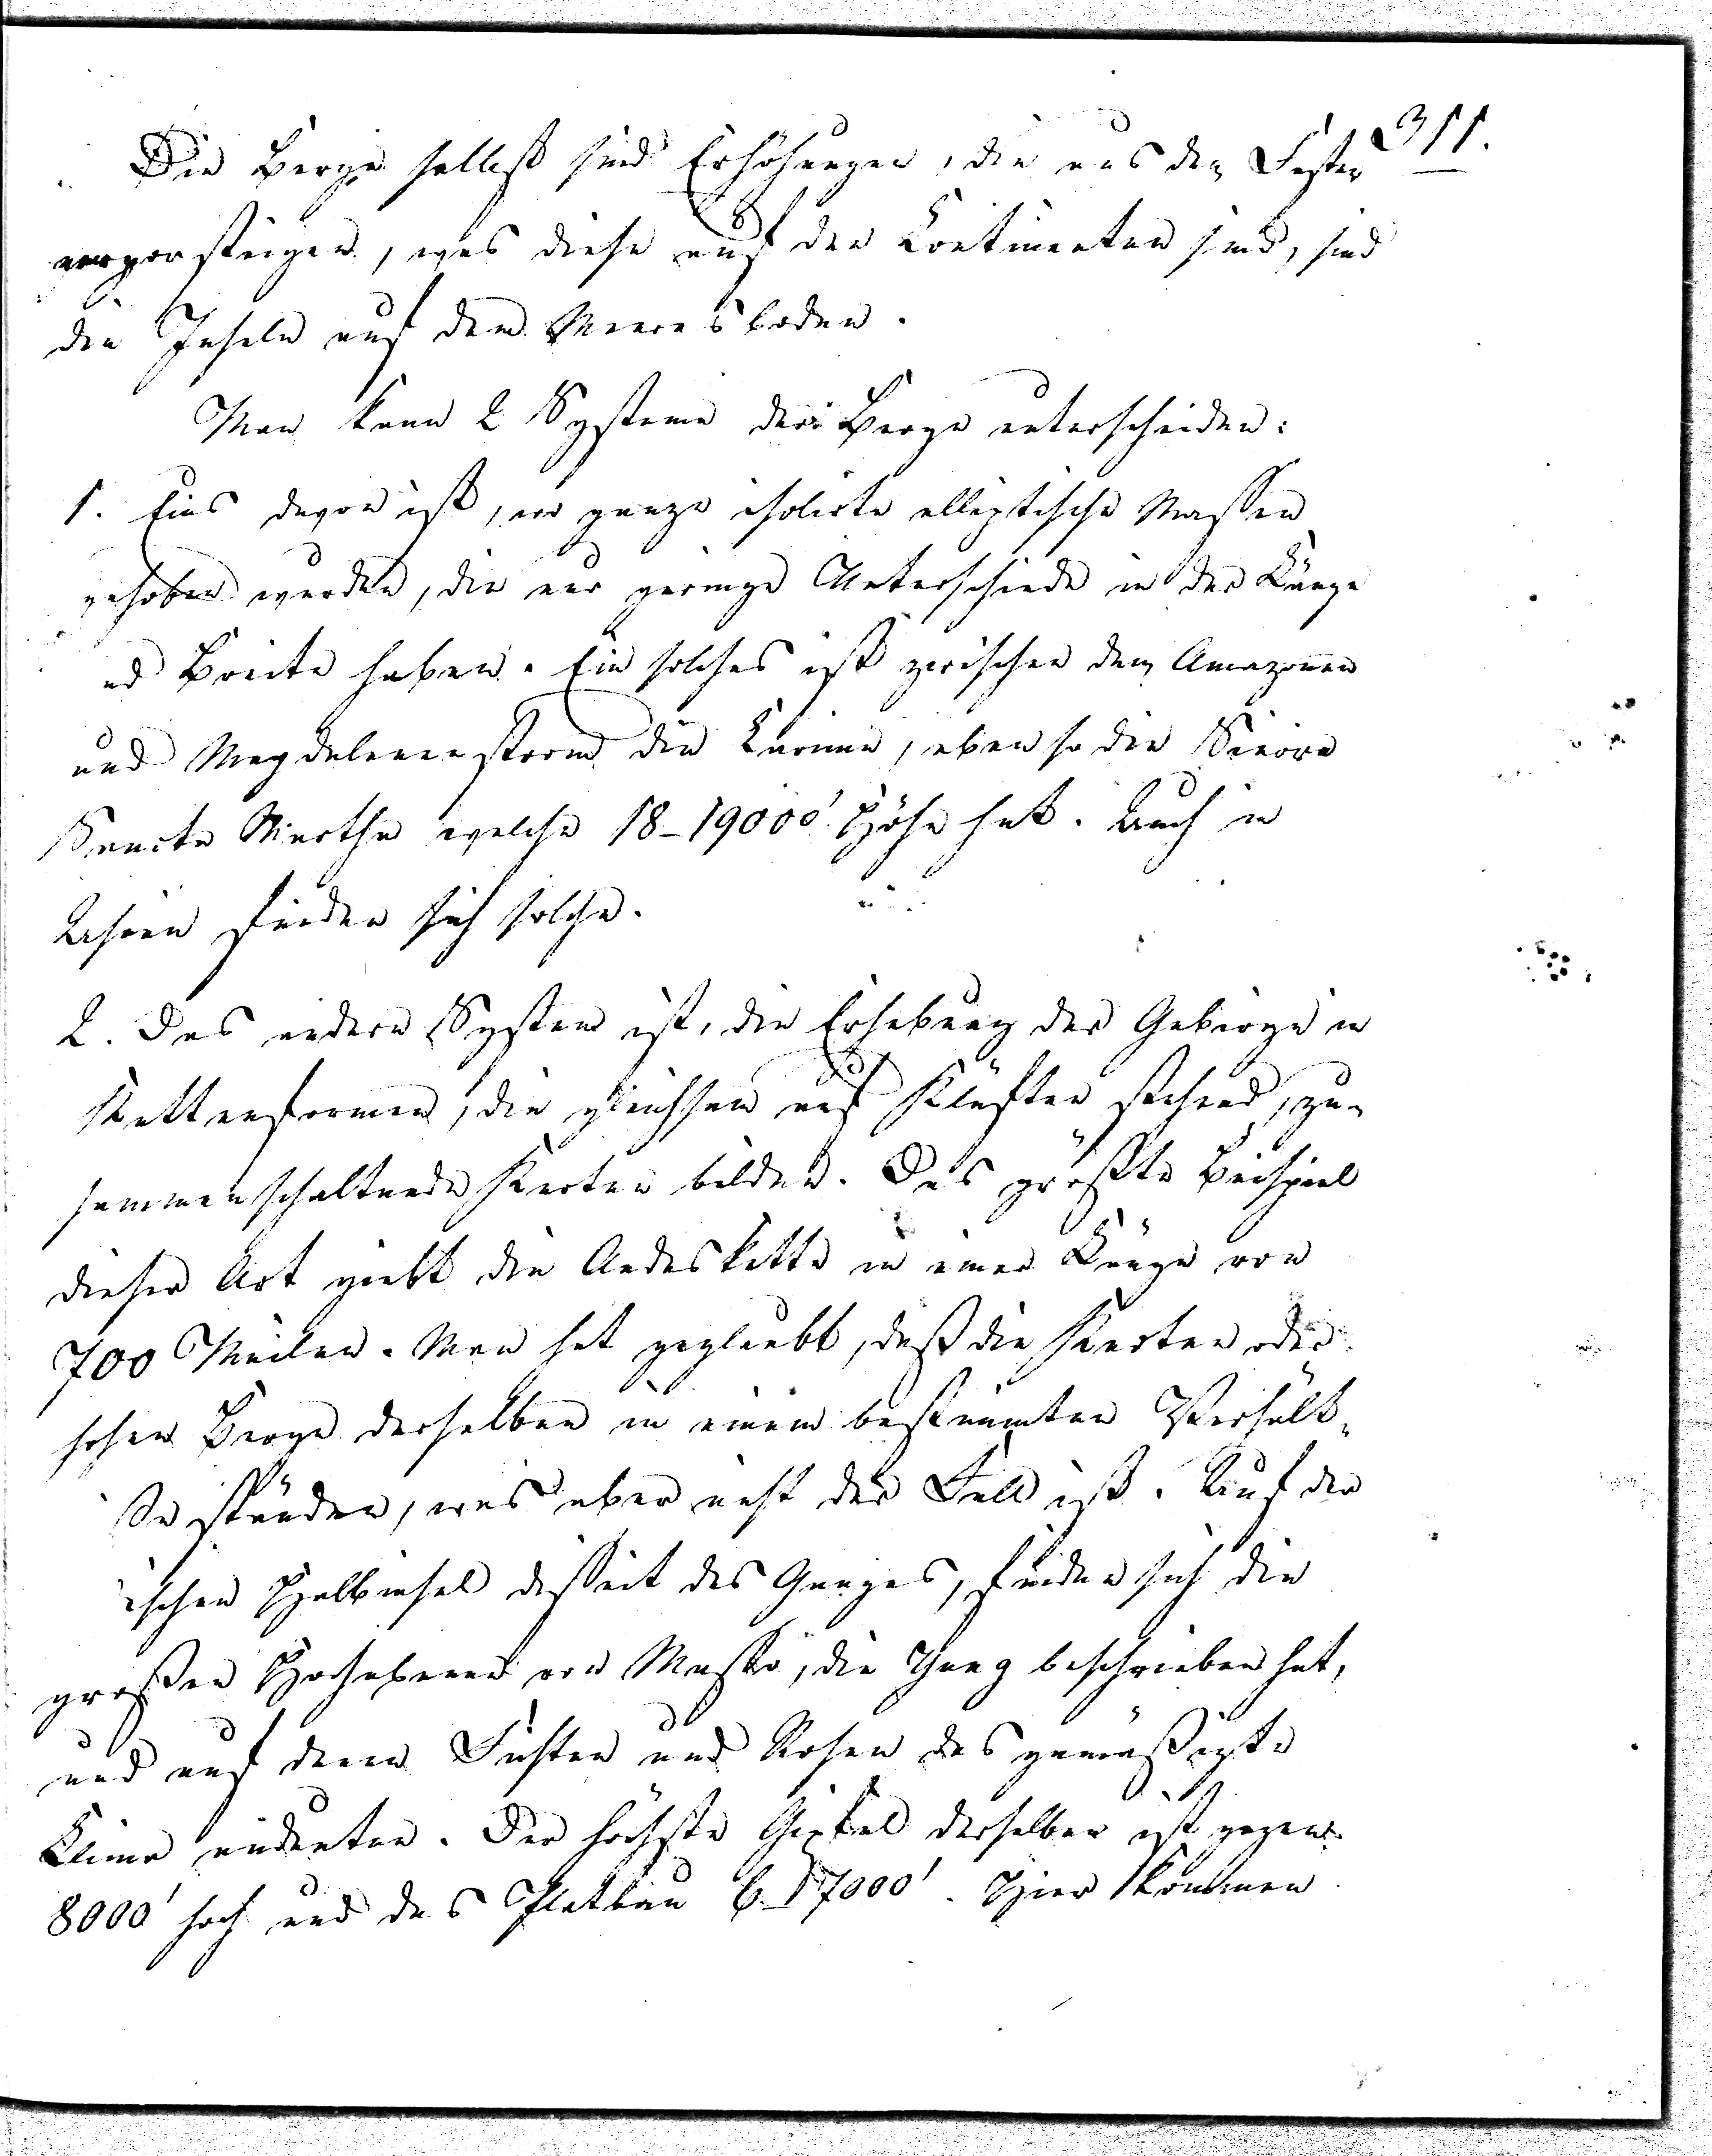 311.
Die Berge selbst sind Erhöhungen, die aus den Festen
emporsteigen, was diese auf den Continenten sind, sind
die Inseln auf dem Meeresboden.
Man kann 2 Systeme der Berge unterscheiden:
1. Eins davon ist, wo ganze isolirte elliptische Massen
gehoben werden, die nur geringe Unterschiede in der Länge
und Breite haben. Ein solches ist zwischen dem Amazonen
und Magdalenenstrom die Parime, eben so die Sierra
Sancta Martha welche 18-19000' Höhe hat. Auch in
Asien finden sich solche.
2. Das andere System ist, die Erhebung der Gebirge in
Kettenformen, die gleichsam auf Klüften stehend, zu-
sammenhaltende Ketten bilden. Das größte Beispiel
dieser Art giebt die Andeskette in einer Länge von
700 Meilen. Man hat geglaubt, daß die oder
hohen Berge derselben in einem bestimmten Verhält-
ständen, was aber nicht der Fall ist. Auf der
ischen Halbinsel disseit des Ganges, finden sich die
großen Hochebenen von die beschrieben hat,
und auf denen Fichten und Rosen das gemäßigte
Clima andeuten. Der höchste Gipfel derselben ist gegen
8000' hoch und das Plateau 6-7000'. Hier kommen